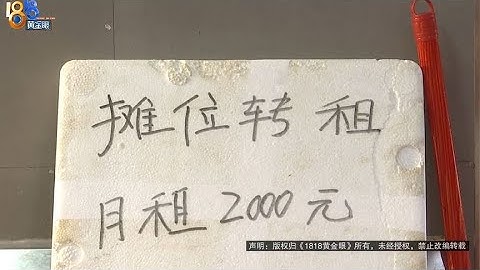 1818
黄金眼
摊位转租
月租2000元
声明：版权归《1818黄金眼》所有，未经授权，禁止改编转载